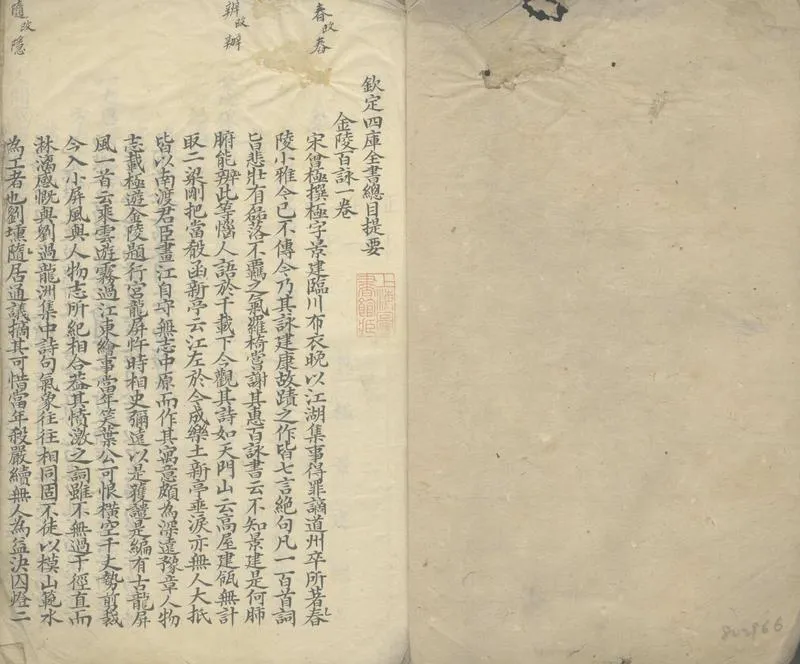 春改舂
辨改辦
隨改隱
欽定四庫全書總目提要
金陵百詠一卷
宋曾極撰極字景建臨川布衣晚以江湖集事得罪謫道州卒所著春
陵小雅今已不傳今乃其詠建康故蹟之作皆七言絕句凡一百首詞
旨悲壯有磊落不羈之氣羅椅嘗謝其惠百詠書云不知景建是何肺
腑能辨此等惱人語於千載下今觀其詩如天門山云高屋建瓴無計
取二梁剛把當殽函新亭云江左於今成樂土新亭垂淚亦無人大扺
皆以南渡君臣畫江自守無志中原而作其寓意頗為深遠豫章人物
志載極遊金陵題行宮龍屏忤時相史彌遠以是獲譴是編有古龍屏
風一首云乘雲遊霧過江東繪事當年笑葉公可恨橫空千丈勢剪裁
今入小屏風與人物志所紀相合蓋其憤激之詞雖不無過于徑直而
淋漓感慨與劉過龍洲集中詩句氣象往往相同固不徒以模山範水
為工者也劉壎隨居通議摘其可惜當年殺嚴續無人為益決囚燈二